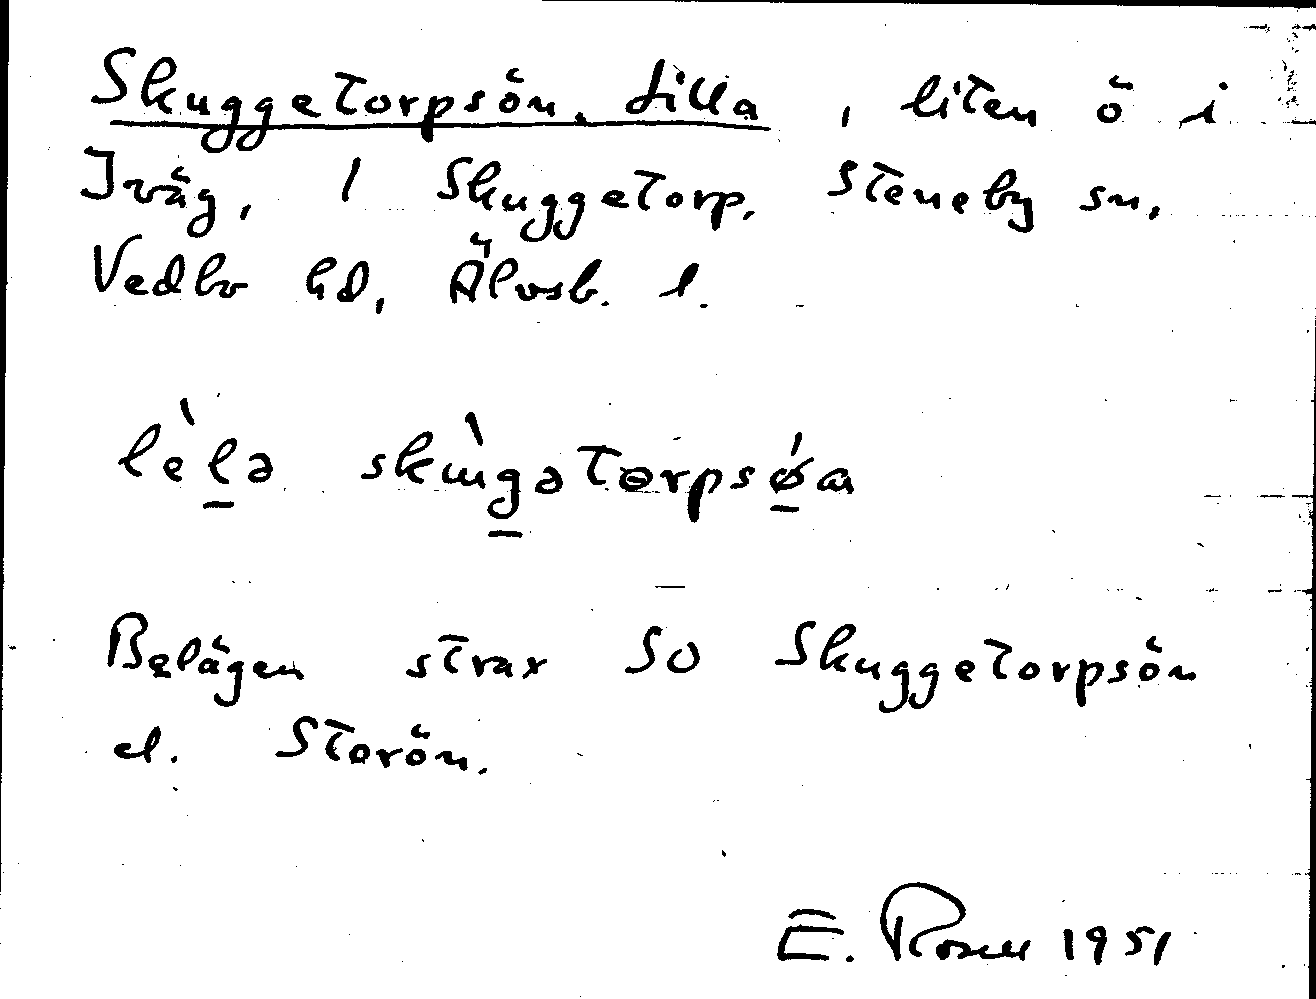 Skuggetorpsön, Lilla, liten ö i
Iväg, / Skuggetorp. Steneby sn,
Vedbo hd, Älvsb. l.
lèlə skùgətɵrpsǿa
Belägen strax SO Skuggetorpsön
el. Storön.
E. Rosell 1951